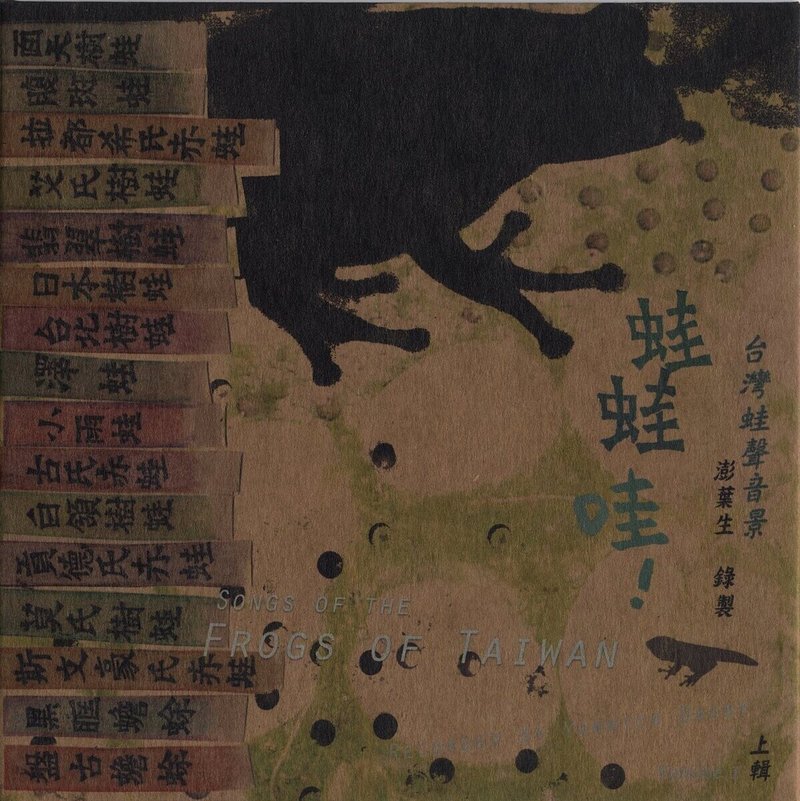 面天樹蛙
腹斑蛙
拉都希氏赤蛙
艾氏樹蛙
翡翠樹蛙
日本樹蛙
台北樹蛙
澤蛙
小雨蛙
古氏赤蛙
白頷樹蛙
貢德氏赤蛙
莫氏樹蛙
斯文豪氏赤蛙
黑眶蟾蜍
盤古蟾蜍
蛙蛙哇!
台灣蛙聲音景
澎葉生 錄製
SONGS OF THE
FROGS OF TAIWAN
RECORDED BY YANNICK DAUBY
上輯